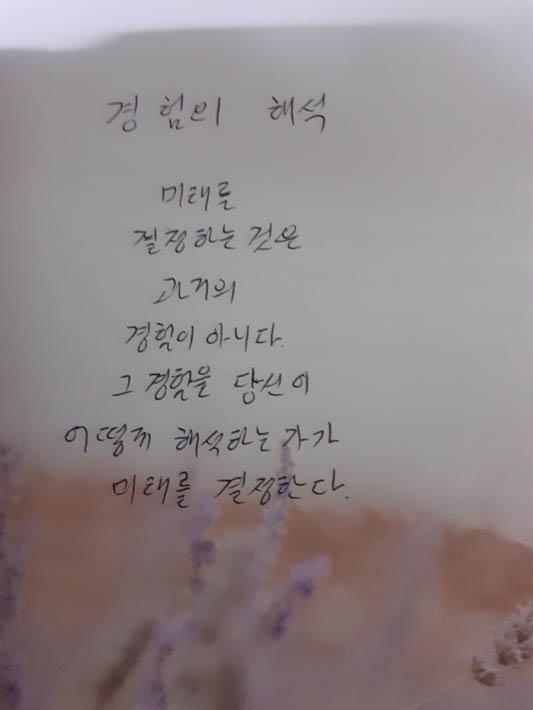 경험의 해석
미래를
결정하는 것은
과거의
경험이 아니다.
그 경험을 당신이
어떻게 해석하는가가
미래를 결정한다.